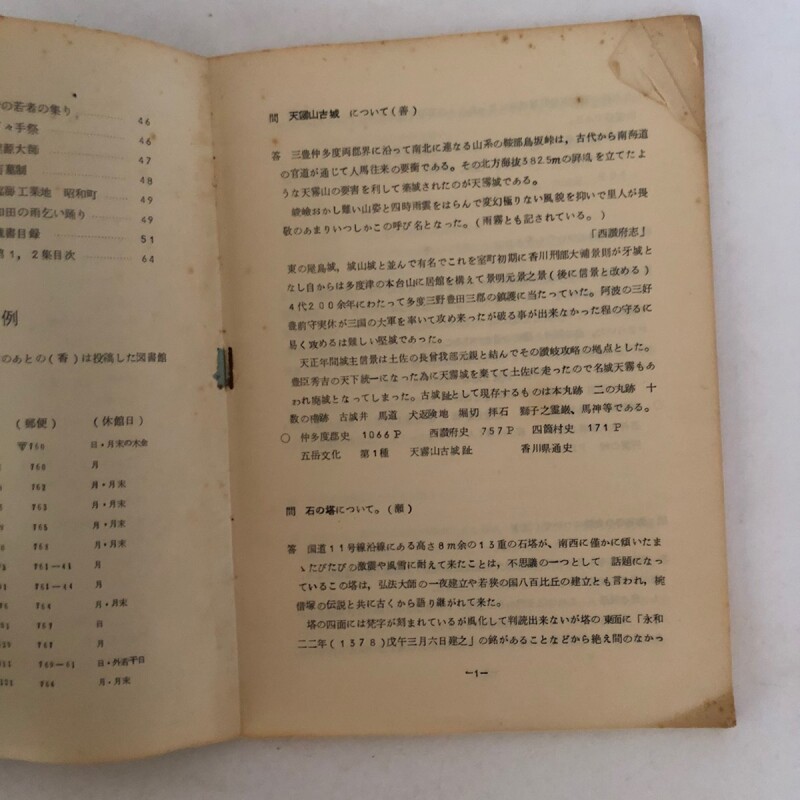 の若者の集り 46
々手祭 46
大師 47
制 48
工業地 昭和町 49
和田の雨乞い踊り 49
書目録 51
第1,2集目次 64
例
のあとの(香)は投稿した図書館
(郵便) (休館日)
〒760 日・月末の木金
〒60 月
〒62 月・月末
〒63 月・月末
〒65 月・月末
〒61 月・月末
〒61-41 月
〒61-44 月
〒64 月・月末
〒67 日
〒67 月
〒60-61
〒64 月・月末
問 天霧山古城 について(善)
答 三豊仲多度両郡界に沿って南北に連なる山系の鞍部鳥坂峠は,古代から南海道
の官道が通じて人馬往来の要衝である。その北方海抜382.5mの屛風を立てたよ
うな天霧山の要害を利して築城されたのが天霧城である。
峻嶮おかし難い山姿と四時雨雲をはらんで変幻極りない風貌を抑いで里人が畏
敬のあまりいつしかこの呼び名となった。(雨霧とも記されている。)
「西讃府志」
東の尾島城,城山城と並んで有名でこれを室町初期に香川刑部大輔景則が牙城と
なし自からは多度津の本台山に居館を構えて景明元景之景(後に信景と改める)
4代200余年にわたって多度三野豊田三郡の鎮護に当たっていた。阿波の三好
豊前守実休が三国の大軍を率いて攻め来ったが破る事が出来なかった程の守るに
易く攻めるは難しい堅城であった。
天正年間城主信景は土佐の長曾我部元親と結んでその讃岐攻略の拠点とした。
豊臣秀吉の天下統一になった為に天霧城を棄てて土佐に走ったので名城天霧もあ
われ廃城となってしまった。古城趾として現存するものは本丸跡 二の丸跡 十
数の塁跡 古城井 馬道 犬返険地 堀切 拝石 獅子之霊巌、馬神等である。
○ 仲多度郡史 1066P 西讃府史 757P 四箇村史 171P
五岳文化 第1種 天霧山古城趾 香川県通史
問 石の塔について。(願)
答 国道11号線沿線にある高さ8m余の13重の石塔が、南西に僅かに傾いたま
ゝたびたびの激震や風雪に耐えて来たことは,不思議の一つとして 話題になっ
ているこの塔は,弘法大師の一夜建立や若狭の国八百比丘の建立とも言われ,椀
借塚の伝説と共に古くから語り継がれて来た。
塔の四面には梵字が刻まれているが風化して判読出来ないが塔の 東面に「永和
二二年(1378)戊午三月六日建之」の銘があることなどから絶え間のなかっ
-1-